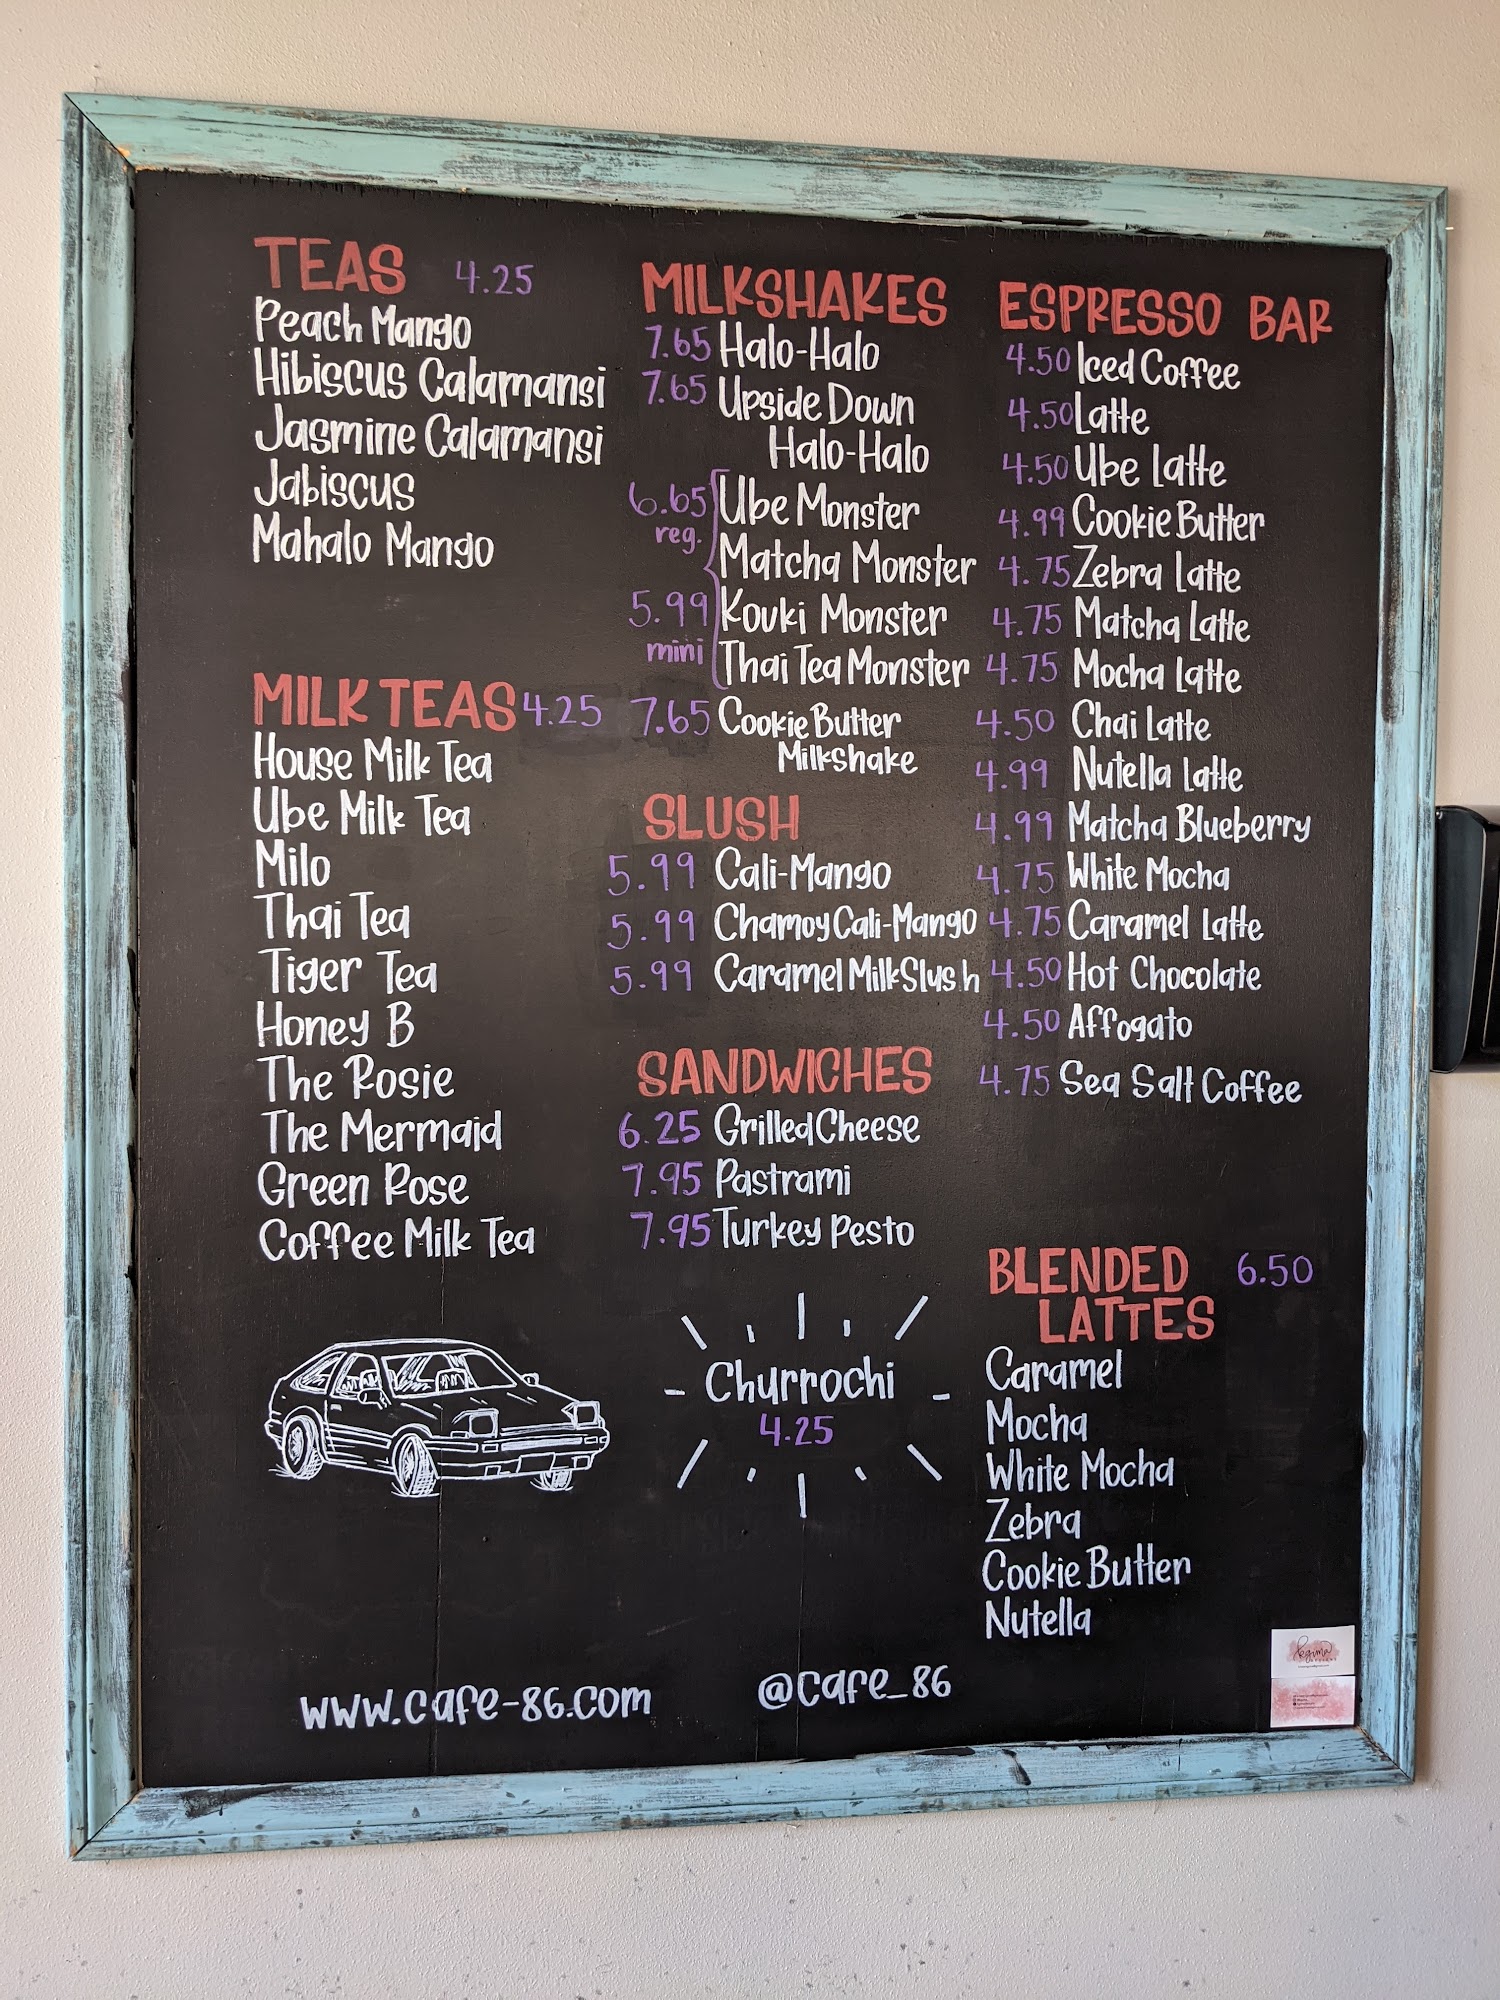 TEAS 4.25
Peach Mango
Hibiscus Calamansi
Jasmine Calamansi
Jabiscus
Mahalo Mango
MILK TEAS 4.25
House Milk Tea
Ube Milk Tea
Milo
Thai Tea
Tiger Tea
Honey B
The Rosie
The Mermaid
Green Rose
Coffee Milk Tea
MILKSHAKES
7.65 Halo-Halo
7.65 Upside Down
Halo-Halo
6.65 Ube Monster
reg.
Matcha Monster
5.99 Kouki Monster
mini Thai Tea Monster
7.65 Cookie Butter
Milkshake
SLUSH
5.99 Cali-Mango
5.99 Chamoy Cali-Mango
5.99 Caramel Milk Slush
SANDWICHES
6.25 Grilled Cheese
7.95 Pastrami
7.95 Turkey Pesto
Churrochi
4.25
ESPRESSO BAR
4.50 Iced Coffee
4.50 Latte
4.50 Ube Latte
4.99 Cookie Butter
4.75 Zebra Latte
4.75 Matcha Latte
4.75 Mocha Latte
4.50 Chai Latte
4.99 Nutella Latte
4.99 Matcha Blueberry
4.75 White Mocha
4.75 Caramel Latte
4.50 Hot Chocolate
4.50 Affogato
4.75 Sea Salt Coffee
BLENDED 6.50
LATTES
Caramel
Mocha
White Mocha
Zebra
Cookie Butter
Nutella
www.cafe-86.com
@cafe_86